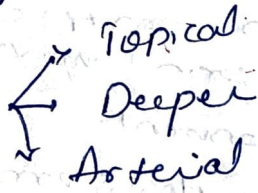 Topical
Deeper
Arterial